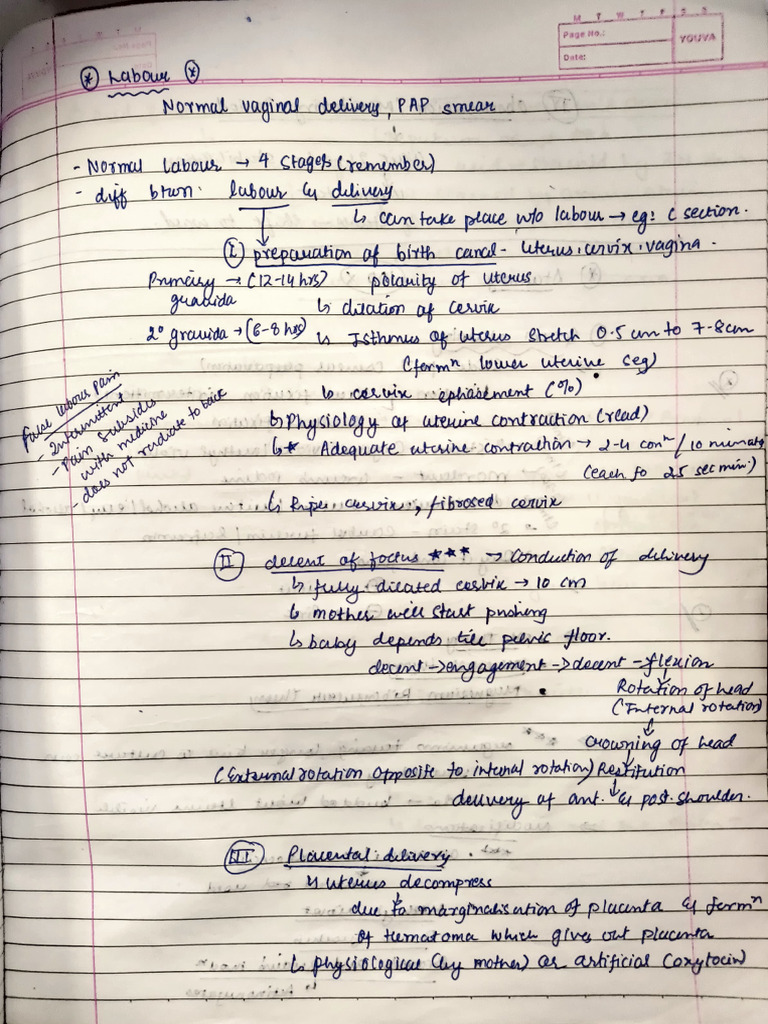 M T W T F S S
Page No.:
YOUVA
Date:
* Labour *
Normal vaginal delivery, PAP smear
- Normal labour → 4 stages (remember)
- diff btwn. labour & delivery
↳ can take place w/o labour → eg: C section.
I preparation of birth canal - uterus, cervix, vagina.
Primary → (12-14 hrs) polarity of uterus
gravida
↳ dilation of cervix
2° gravida → (6-8 hrs) ↳ Isthmus of uterus stretch 0.5 cm to 7-8cm
(formⁿ lower uterine seg)
↳ cervix ephasement (%)
↳ Physiology of uterine contraction (read)
↳ * Adequate uterine contraction → 2-4 conⁿ / 10 minute
(each fo 25 sec min.)
↳ Ripe cervix, fibrosed cervix
False labour pain
- Intermittent
- Pain subsides
with medicine
- does not radiate to back
II decent of foetus *** → Conduction of delivery
↳ fully dilated cervix → 10 cm
↳ mother will start pushing
↳ baby depends till pelvic floor.
decent → engagement → decent → flexion
↓
Rotation of head
(Internal rotation)
↓
Crowning of head
↓
(External rotation opposite to internal rotation) Restitution
↓
delivery of ant. & post. shoulder.
III Placental delivery.
↳ uterus decompress
↓
due to marginalisation of placenta & formⁿ
of hematoma which gives out placenta
↳ physiological (by mother) or artificial (oxytocin)